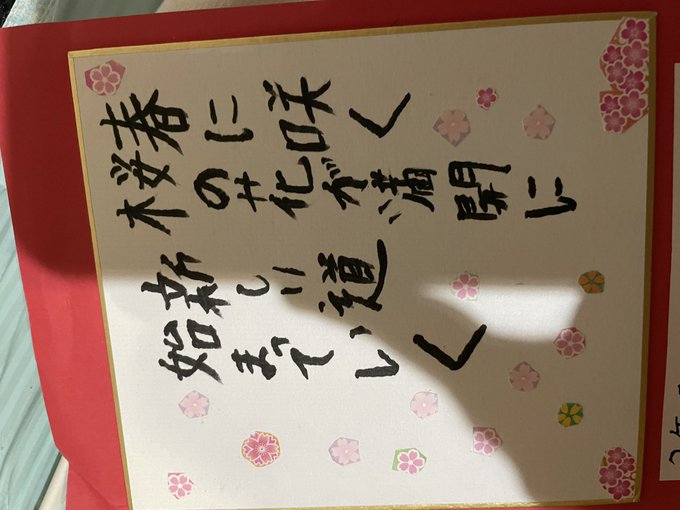 春に咲く
桜の花が満開に
新しい道
始まっていく